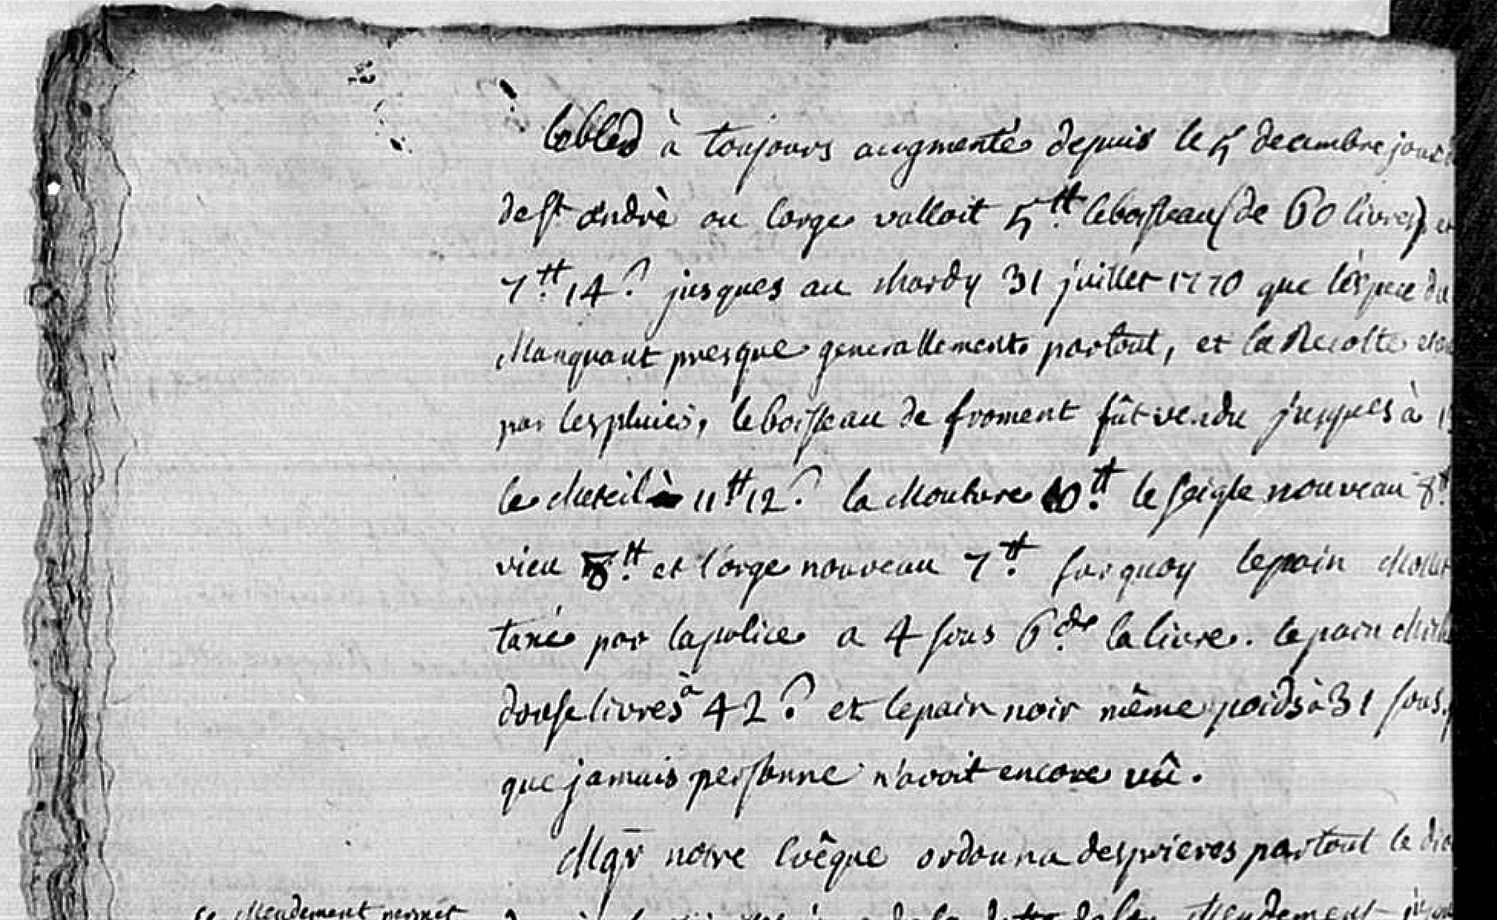 le bled à toujours augmenté depuis le 5 decembre jour
de st andrè ou lorge valloit 5tt le boisseau (de 60 livres) et
7tt 14s jusques au Mardy 31 juillet 1770 que l'éspece du
Manquant presque generallements partout, et la Recolte
par les pluies, le boisseau de froment fût vendu jusques à
le Meteil à 11tt 12s la Mouture 10tt le seigle nouveau 8tt
vieu 8tt et l'orge nouveau 7tt surquoy le pain
taxé par la police a 4 sous 6 drs la livre. le pain
douse livres à 42s et le pain noir même poids à 31 sous.
que jamais personne n'avoit encore vû.
Mgr notre évêque ordonna des prieres partout le
Mendement permet
Mendement